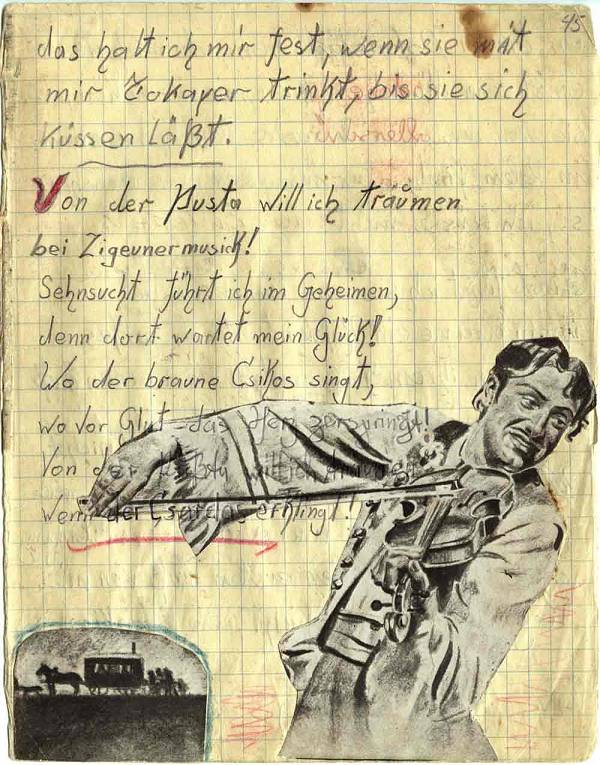 45
das halt ich mir fest, wenn sie mit
mir Tokayer trinkt, bis sie sich
küssen läßt.
Von der Pusta will ich träumen
bei Zigeunermusick!
Sehnsucht führt ich im Geheimen,
denn dort wartet mein Glück!
Wo der braune Csikos singt,
wo vor Glut das Herz zerspringt!
Von der Pusta will ich träumen
Wenn der Csardas erklingt!